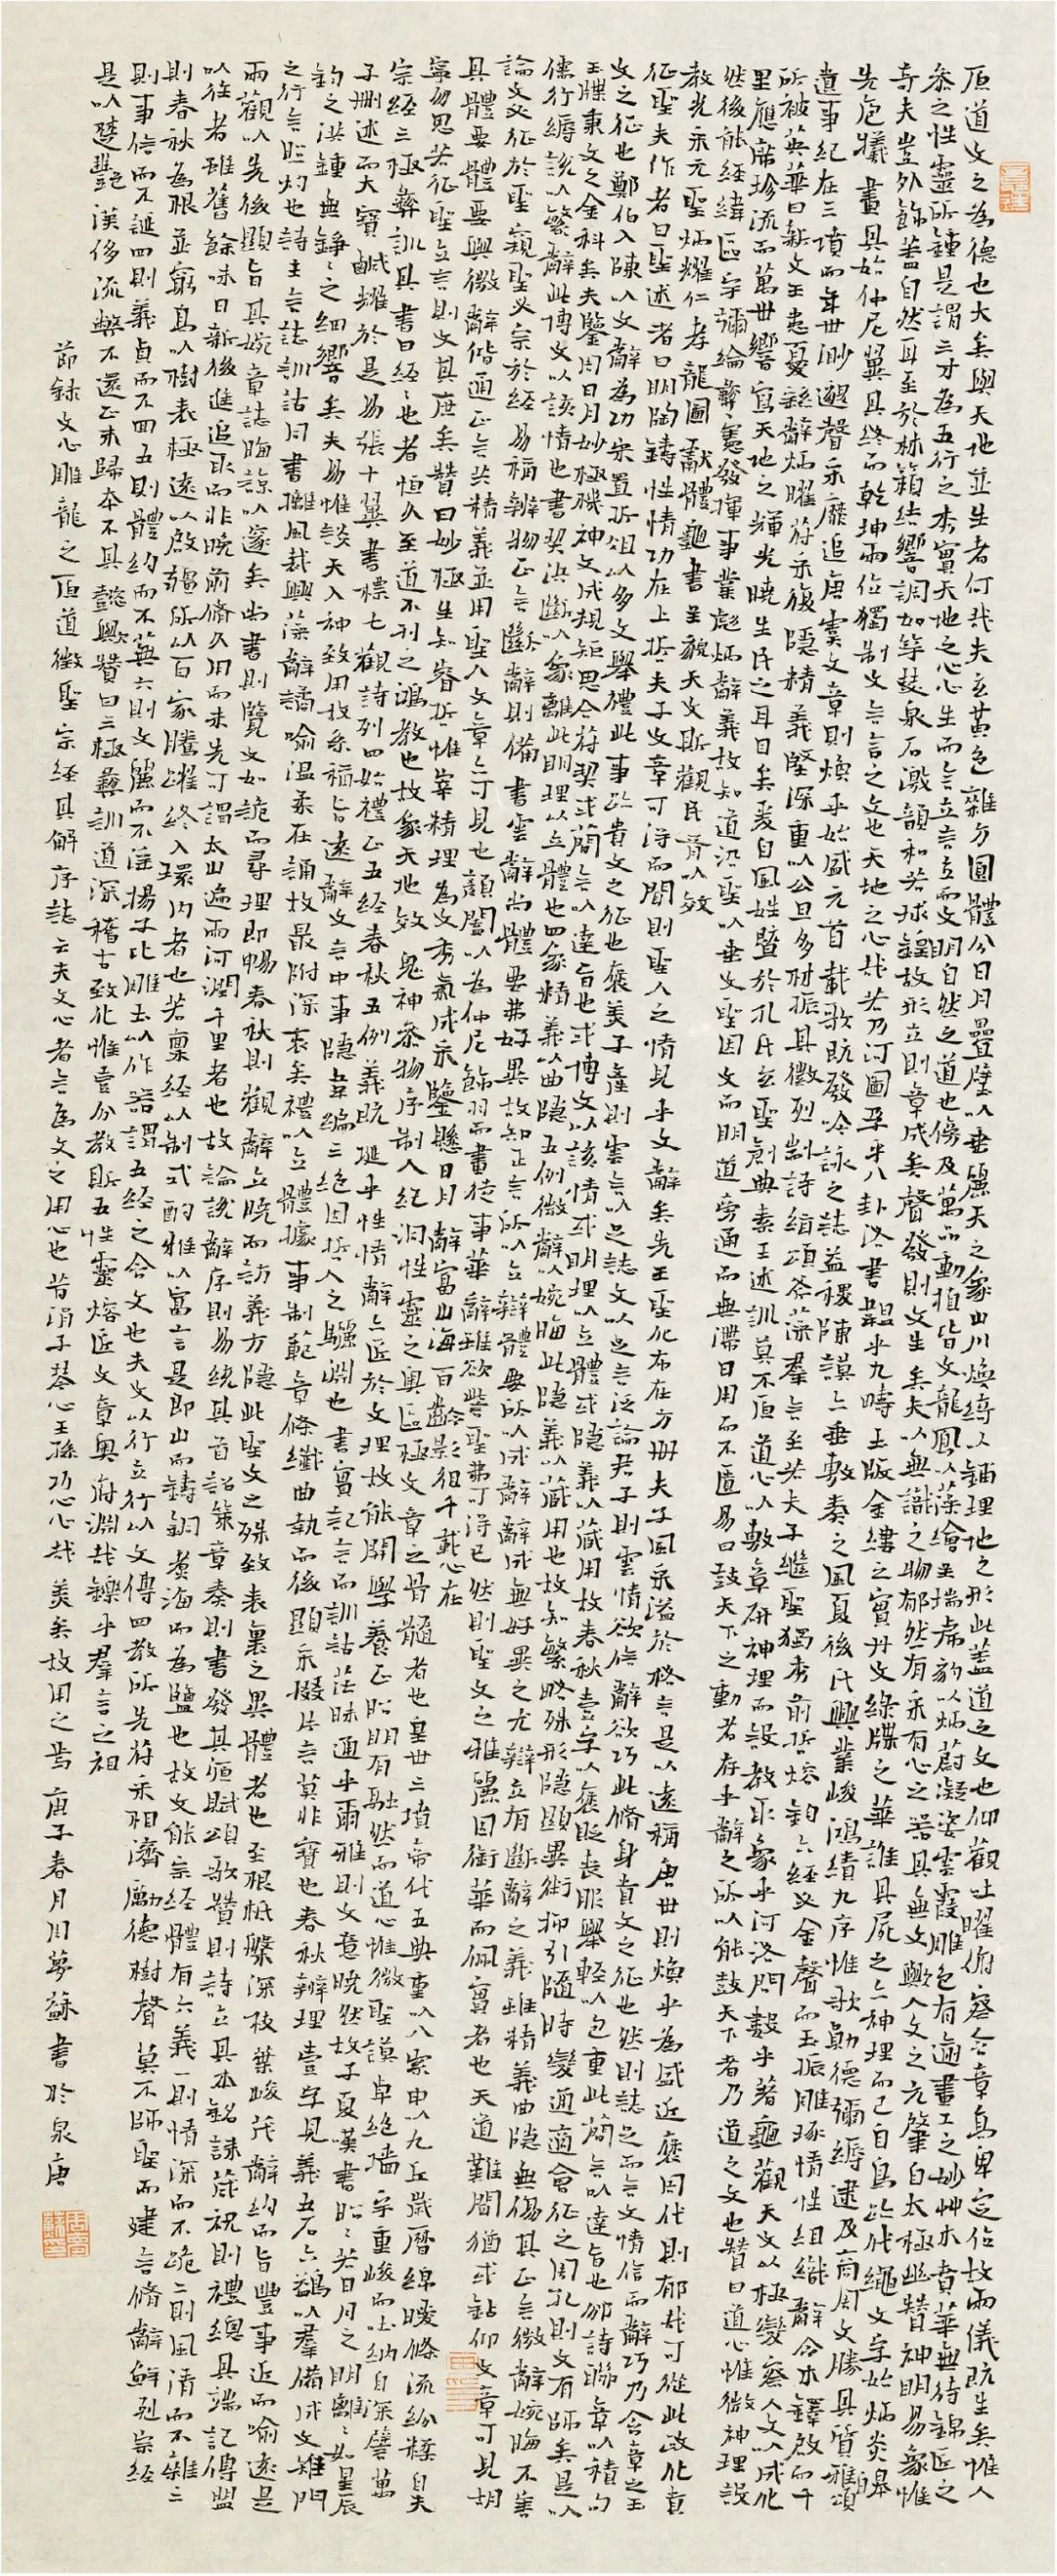 原道文之為德也大矣與天地並生者何哉夫玄黃色雜方圓體分日月疊璧以垂麗天之象山川煥綺以鋪理地之形此蓋道之文也仰觀吐曜俯察含章高卑定位故兩儀既生矣惟人
參之性靈所鍾是謂三才為五行之秀實天地之心心生而言立言立而文明自然之道也傍及萬品動植皆文龍鳳以藻繪呈瑞虎豹以炳蔚凝姿雲霞雕色有逾畫工之妙艸木賁華無待錦匠之
奇夫豈外飾蓋自然耳至於林籟結響調如竽瑟泉石激韻和若球鍠故形立則章成矣聲發則文生矣夫以無識之物郁然有采有心之器其無文歟人文之元肇自太極幽贊神明易象惟
先庖犧畫其始仲尼翼其終而乾坤兩位獨制文言言之文也天地之心哉若乃河圖孕乎八卦洛書韞乎九疇玉版金鏤之實丹文綠牒之華誰其尸之亦神理而已自鳥跡代繩文字始炳炎皞
遺事紀在三墳而年世渺邈聲采靡追唐虞文章則煥乎始盛元首載歌既發吟詠之誌益稷陳謨亦垂敷奏之風夏後氏興業峻鴻績九序惟歌勛德彌縟逮及商周文勝其質雅頌
所被英華日新文王患憂繇辭炳曜符采復隱精義堅深重以公旦多材振其徽烈剬詩緝頌斧藻羣言至若夫子繼聖獨秀前哲熔鈞六經必金聲而玉振雕琢情性組織辭令木鐸啟而千
里應席珍流而萬世響寫天地之輝光曉生民之耳目矣爰自風姓暨於孔氏玄聖創典素王述訓莫不原道心以敷章研神理而設教取象乎河洛問數乎蓍龜觀天文以極變察人文以成化
然後能經緯區宇彌綸彝憲發揮事業彪炳辭義故知道沿聖以垂文聖因文而明道旁通而無滯日用而不匱易曰鼓天下之動者存乎辭辭之所以能鼓天下者乃道之文也贊曰道心惟微神理設
教光采元聖炳耀仁孝龍圖獻體龜書呈貌天文斯觀民胥以效
征聖夫作者曰聖述者曰明陶鑄性情功在上哲夫子文章可得而聞則聖人之情見乎文辭矣先王聖化布在方冊夫子風采溢於格言是以遠稱唐世則煥乎為盛近褒周代則郁哉可從此政化貴
文之征也鄭伯入陳以文辭為功宋置折俎以多文舉禮此事跡貴文之征也褒美子產則雲言以足誌文以足言泛論君子則雲情欲信辭欲巧此修身貴文之征也然則誌足而言文情信而辭巧乃含章之玉
玉牒秉文之金科矣夫鑒周日月妙極機神文成規矩思合符契或簡言以達旨也或博文以該情或明理以立體或隱義以藏用故春秋壹字以褒貶喪服舉輕以包重此簡言以達旨也邠詩聯章以積句
儒行縟說以繁辭此博文以該情也書契決斷以象離此明理以立體也四象精義以曲隱五例微辭以婉晦此隱義以藏用也故知繁略殊形隱顯異術抑引隨時變通適會征之周孔則文有師矣是以
論文必征於聖窺聖必宗於經易稱辨物正言斷辭則備書雲辭尚體要弗好異故知正言所以立辯體要所以成辭辭成無好異之尤辯立有斷辭之義雖精義曲隱無傷其正言微辭婉晦不害
其體要體要與微辭偕通正言共精義並用聖人文章亦可見也顏闔以為仲尼飾羽而畫徒事華辭雖欲訾聖弗可得已然則聖文之雅麗固銜華而佩實者也天道難聞猶或鉆仰文章可見胡
寧勿思若征聖立言則文其庶矣贊曰妙極生知睿哲惟宰精理為文秀氣成采鑒懸日月辭富山海百齡影徂千載心在
宗經三極彝訓其書曰經經也者恒久至道不刊之鴻教也故象天地效鬼神參物序制人紀洞性靈之奧區極文章之骨髓者也皇世三墳帝代五典重以八索申以九丘歲曆綿曖條流紛糅自夫
子刪述而大寶鹹耀於是易張十翼書標七觀詩列四始禮正五經春秋五例義既埏乎性情辭亦匠於文理故能開學養正昭明有融然而道心惟微聖謨卓絕墻宇重峻而吐納自深譬萬
鈞之洪鍾無錚錚之細響矣夫易惟談天入神致用故系稱旨遠辭文言中事隱韋編三絕固哲人之驪淵也書實記言而訓詁茫昧通乎爾雅則文意曉然故子夏嘆書昭昭若日月之明離離如星辰
之行言昭灼也詩主言誌訓詁同書摛風裁興藻辭譎喻溫柔在誦故最附深衷矣禮以立體據事制範章條纖曲執而後顯采掇片言莫非寶也春秋辨理壹字見義五石六鷁以羣備成文雉門
兩觀以先後顯旨其婉章誌晦諒以邃矣尚書則覽文如詭而尋理即暢春秋則觀辭立曉而訪義方隱此聖文之殊致表裏之異體者也至根柢槃深枝葉峻茂辭約而旨豐事近而喻遠是
以往者雖舊餘味日新後進追取而非晚前修久用而未先可謂太山遍雨河潤千里者也故論說辭序則易統其首詔策章奏則書發其源賦頌歌贊則詩立其本銘誄箴祝則禮總其端記傳盟
則春秋為根並窮高以樹表極遠以啟疆所以百家騰躍終入環內者也若稟經以制式酌雅以富言是即山而鑄銅煮海而為鹽也故文能宗經體有六義一則情深而不詭二則風清而不雜三
則事信而不誕四則義貞而不回五則體約而不蕪六則文麗而不淫揚子比雕玉以作器謂五經之含文也夫文以行立行以文傳四教所先符采相濟勵德樹聲莫不師聖而建言修辭鮮剋宗經
是以楚艷漢侈流弊不還正末歸本不其懿歟贊曰三極彝訓道深稽古致化惟壹分教斯五性靈熔匠文章奧府淵哉鑠乎羣言之祖
節錄文心雕龍之原道徵聖宗經其解序誌云夫文心者言為文之用心也昔涓子琴心王孫巧心心哉美矣故用之焉庚子春月周夢蘇書於泉唐